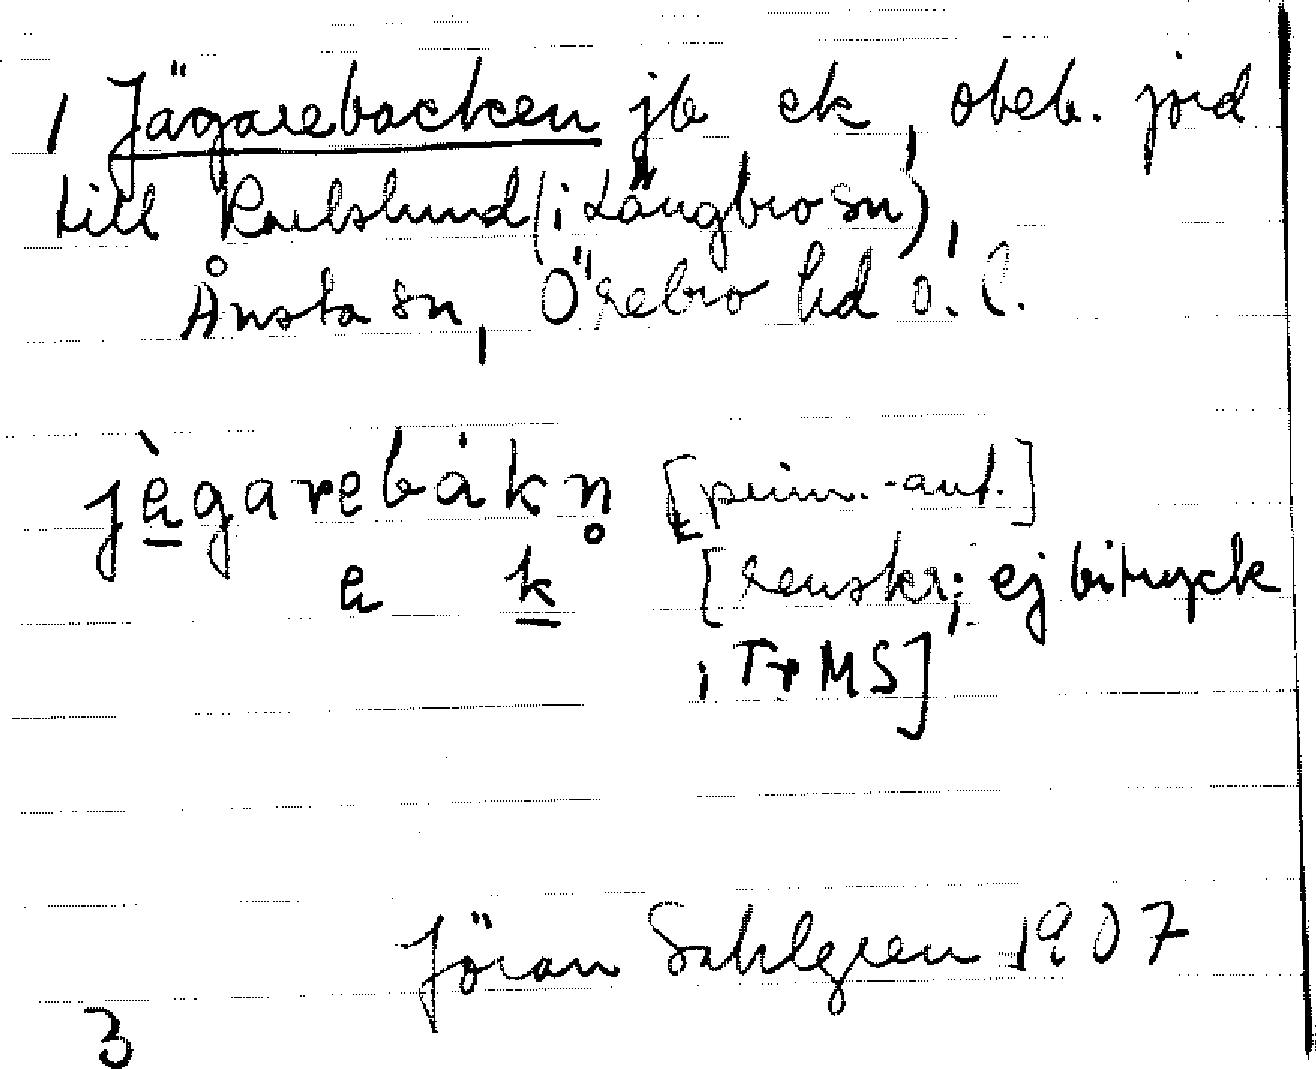 1 Jägarebacken jb ek, obeb. jord
till Karlslund (i Längbro sn),
Ånsta sn, Örebro hd ö. l.
jègarebákn̥ [prim.-ant.]
e k [renskr.; ej bitryck
i Tr MS]
Jöran Sahlgren 1907
3